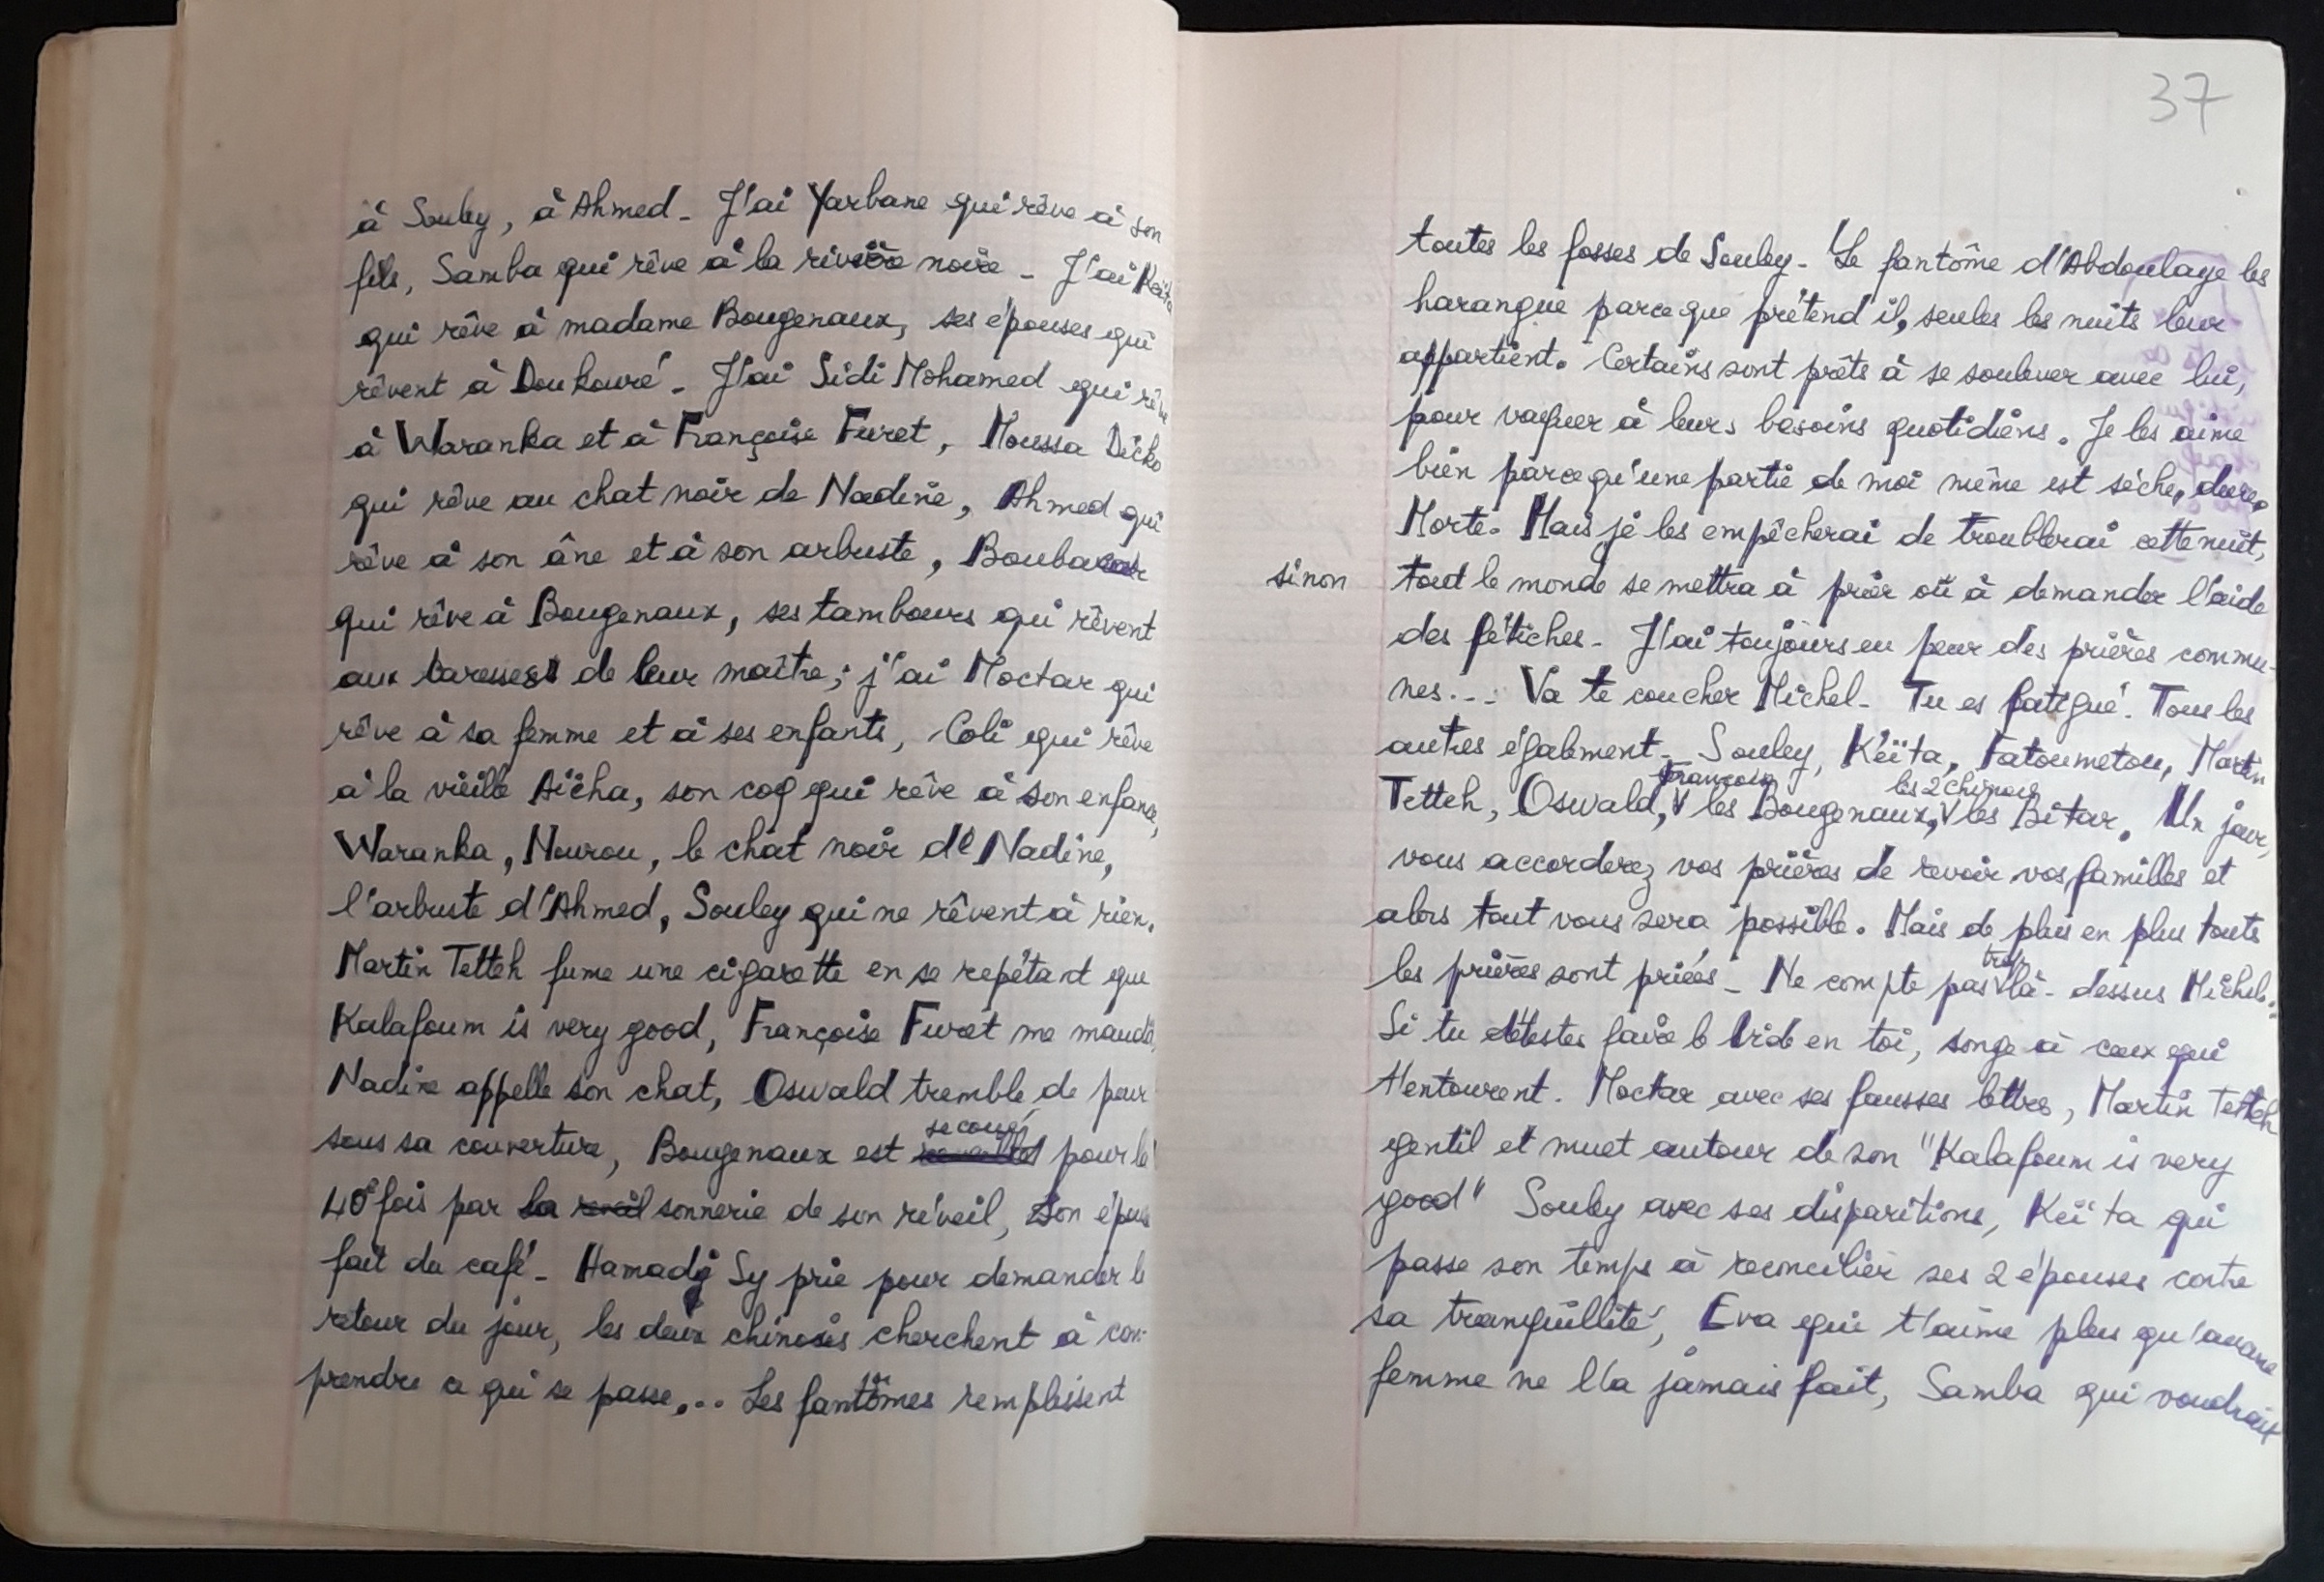 à Souley, à Ahmed - J'ai Yarbane qui rêve à son
fils, Samba qui rêve à la rivière noire - J'ai Keïta
qui rêve à madame Bougenaux, ses épouses qui
rêvent à Doukouré - J'ai Sidi Mohamed qui rêve
à Waranka et à Françoise Furet, Moussa Dicko
qui rêve au chat noir de Nadine, Ahmed qui
rêve à son âne et à son arbuste, Boubacar
qui rêve à Bougenaux, ses tambours qui rêvent
aux caresses de leur maître; j'ai Moctar qui
rêve à sa femme et à ses enfants, Coli qui rêve
à la vieille Aïcha, son coq qui rêve à son enfance,
Waranka, Nourou, le chat noir de Nadine,
l'arbuste d'Ahmed, Souley qui ne rêvent à rien.
Martin Tetteh fume une cigarette en se repétant que
Kalafoum is very good, Françoise Furet me maudit,
Nadine appelle son chat, Oswald tremble de peur
sous sa couverture, Bougenaux est secoué pour la
40e fois par la sonnerie de son réveil, Son épouse
fait du café - Hamady Sy prie pour demander le
retour du jour, les deux chinois cherchent à com-
prendre ce qui se passe,... Les fantômes remplissent
37
toutes les fosses de Souley - Le fantôme d'Abdoulaye les
harangue parceque prétend il, seules les nuits leur
appartient. Certains sont prêts à se soulever avec lui,
pour vaquer à leurs besoins quotidiens. Je les aime
bien parcequ'une partie de moi même est sèche, dure,
Morte. Mais je les empêcherai de troublerai cette nuit,
sinon tout le monde se mettra à prier où à demander l'aide
des fétiches - J'ai toujours eu peur des prières commu-
nes... Va te coucher Michel - Tu es fatigué. Tous les
autres également - Souley, Keïta, Fatoumetou, Martin
Tetteh, Oswald, Françoise les Bougenaux, les 2 chinois les Bitar. Un jour,
vous accorderez vos prières de revoir vos familles et
alors tout vous sera possible. Mais de plus en plus touts
les prières sont priées - Ne compte pas trop là-dessus Michel.
Si tu détestes faire le vide en toi, songe à ceux qui
t'entourent. Moctar avec ses fausses lettres, Martin Tetteh
gentil et muet autour de son "Kalafoum is very
good" Souley avec ses disparitions, Keïta qui
passe son temps à reconcilier ses 2 épouses contre
sa tranquillité, Eva qui t'aime plus qu'aucune
femme ne l'a jamais fait, Samba qui voudrait